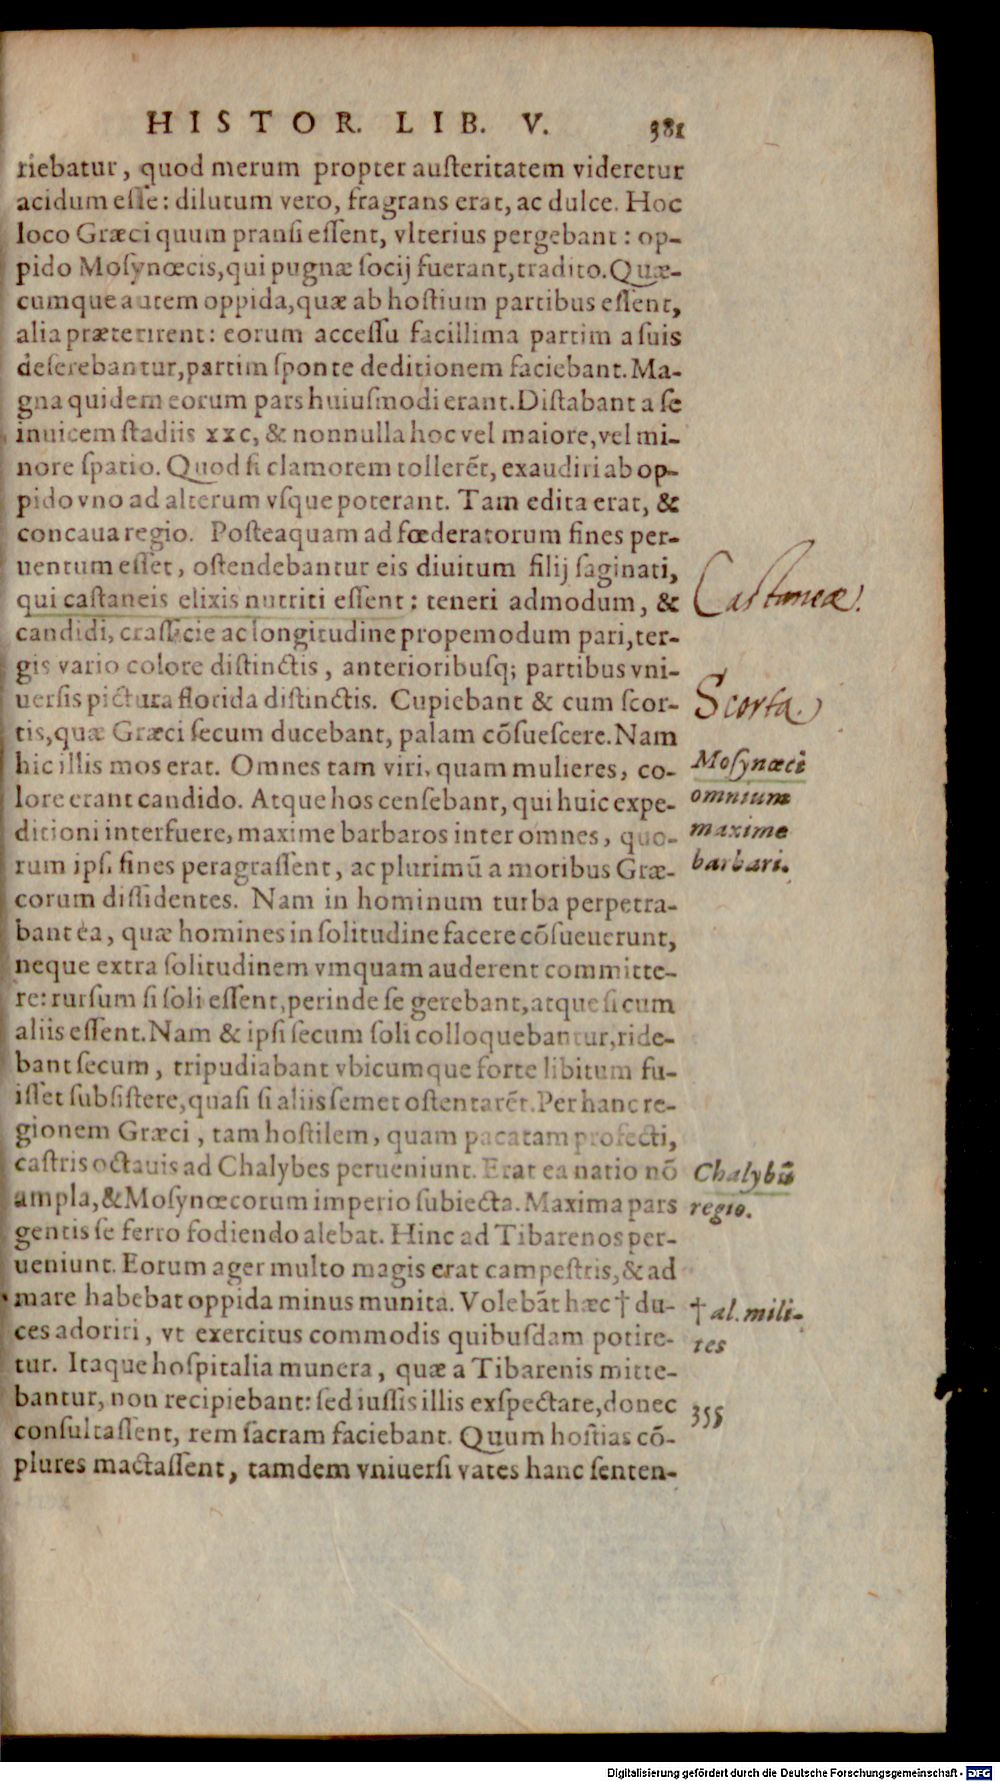 HISTOR. LIB. V. 381
riebatur, quod merum propter auſteritatem videretur
acidum eſſe: dilutum vero, fragrans erat, ac dulce. Hoc
loco Græci quum pranſi eſſent, vlterius pergebant: op-
pido Moſynœcis, qui pugnæ ſocij fuerant, tradito. Quæ-
cumque autem oppida, quæ ab hoſtium partibus eſſent,
alia præterirent: eorum acceſſu facillima partim a ſuis
deſerebantur, partim ſponte deditionem faciebant. Ma-
gna quidem eorum pars huiuſmodi erant. Diſtabant a ſe
inuicem ſtadiis xxc, & nonnulla hoc vel maiore, vel mi-
nore ſpatio. Quod ſi clamorem tollerēt, exaudiri ab op-
pido vno ad alterum vſque poterant. Tam edita erat, &
concaua regio. Poſteaquam ad fœderatorum fines per-
uentum eſſet, oſtendebantur eis diuitum filij ſaginati,
qui caſtaneis elixis nutriti eſſent: teneri admodum, &
Castaneæ.
candidi, craſſicie ac longitudine propemodum pari, ter-
gis vario colore diſtinctis, anterioribuſq; partibus vni-
uerſis pictura florida diſtinctis. Cupiebant & cum ſcor-
Scorta.
tis, quæ Græci ſecum ducebant, palam cōſueſcere. Nam
hic illis mos erat. Omnes tam viri, quam mulieres, co-
Moſynœci
lore erant candido. Atque hos cenſebant, qui huic expe-
omnium
ditioni interfuere, maxime barbaros inter omnes, quo-
maxime
rum ipſi fines peragraſſent, ac plurimū a moribus Græ-
barbari.
corum diſſidentes. Nam in hominum turba perpetra-
bant ea, quæ homines in ſolitudine facere cōſueuerunt,
neque extra ſolitudinem vmquam auderent committe-
re: rurſum ſi ſoli eſſent, perinde ſe gerebant, atque ſi cum
aliis eſſent. Nam & ipſi ſecum ſoli colloquebantur, ride-
bant ſecum, tripudiabant vbicumque forte libitum fu-
iſſet ſubſiſtere, quaſi ſi aliis ſemet oſtentarēt. Per hanc re-
gionem Græci, tam hoſtilem, quam pacatam profecti,
caſtris octauis ad Chalybes perueniunt. Erat ea natio nō
Chalybū
ampla, & Moſynœcorum imperio ſubiecta. Maxima pars
regio.
gentis ſe ferro fodiendo alebat. Hinc ad Tibarenos per-
ueniunt. Eorum ager multo magis erat campeſtris, & ad
mare habebat oppida minus munita. Volebāt hæc † du-
† al. mili-
ces adoriri, vt exercitus commodis quibuſdam potire-
tes
tur. Itaque hoſpitalia munera, quæ a Tibarenis mitte-
bantur, non recipiebant: ſed iuſſis illis exſpectare, donec
355
conſultaſſent, rem ſacram faciebant. Quum hoſtias cō-
plures mactaſſent, tamdem vniuerſi vates hanc ſenten-
Digitalisierung gefördert durch die Deutsche Forschungsgemeinschaft - DFG